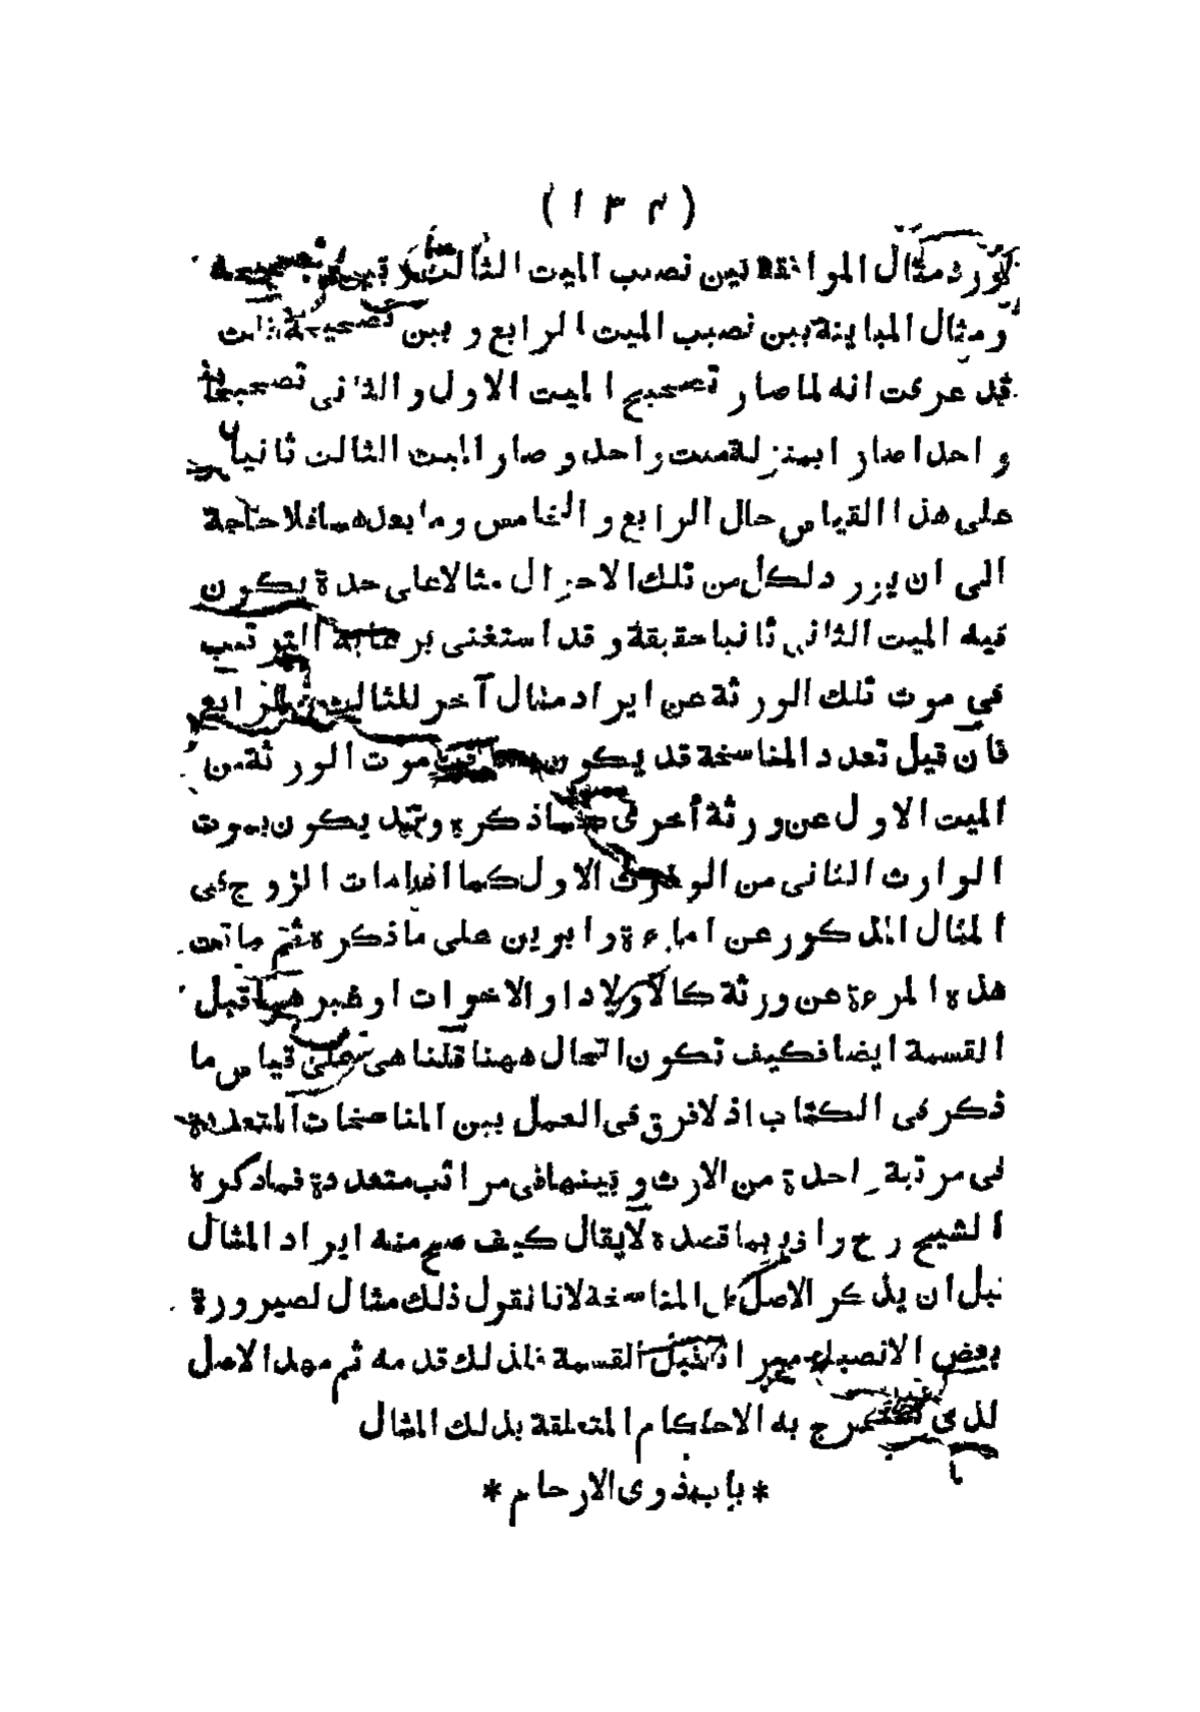 (١٣٤)
ومثال الموافقة بين نصيب الميت الثالث
ومثال المباينة بين نصيب الميت الرابع وبين تصحيحه فانت
قد عرفت انه لما صار تصحيح الميت الاول والثانى تصحيحا
واحدا صارا بمنزلة ميت واحد وصار الميت الثالث ثانيا
على هذا القياس حال الرابع والخامس وما بعدهما فلا حاجة
الى ان يورد لكل من تلك الاحوال مثالا على حدة يكون
فيه الميت الثانى ثانيا حقيقة وقد استغنى برعاية الترتيب
فى موت تلك الورثة عن ايراد مثال آخر للثالث والرابع
فان قيل تعدد المناسخة قد يكون موت الورثة من
الميت الاول عن ورثة أخرى ذكره وقد يكون بموت
الوارث الثانى من الاول كما اذا مات الزوج فى
المثال المذكور عن امرءة وابوين على ما ذكره ثم ماتت
هذه المرءة عن ورثة كالاولاد او الاخوات او غيرهما قبل
القسمة ايضا فكيف تكون الحال ههنا قلنا هى على قياس ما
ذكر فى الكتاب اذ لا فرق فى العمل بين المناسخات المتعددة
فى مرتبة واحدة من الارث وبينها فى مراتب متعددة فما ذكره
الشيخ رح واف بما قصده لا يقال كيف صح منه ايراد المثال
قبل ان يذكر الاصل فى المناسخة لانا نقول ذلك مثال لصيرورة
بعض الانصباء ميراثا قبل القسمة فلذلك قدمه ثم مهد الاصل
لذى به الاحكام المتعلقة بذلك المثال
* باب ذوى الارحام *